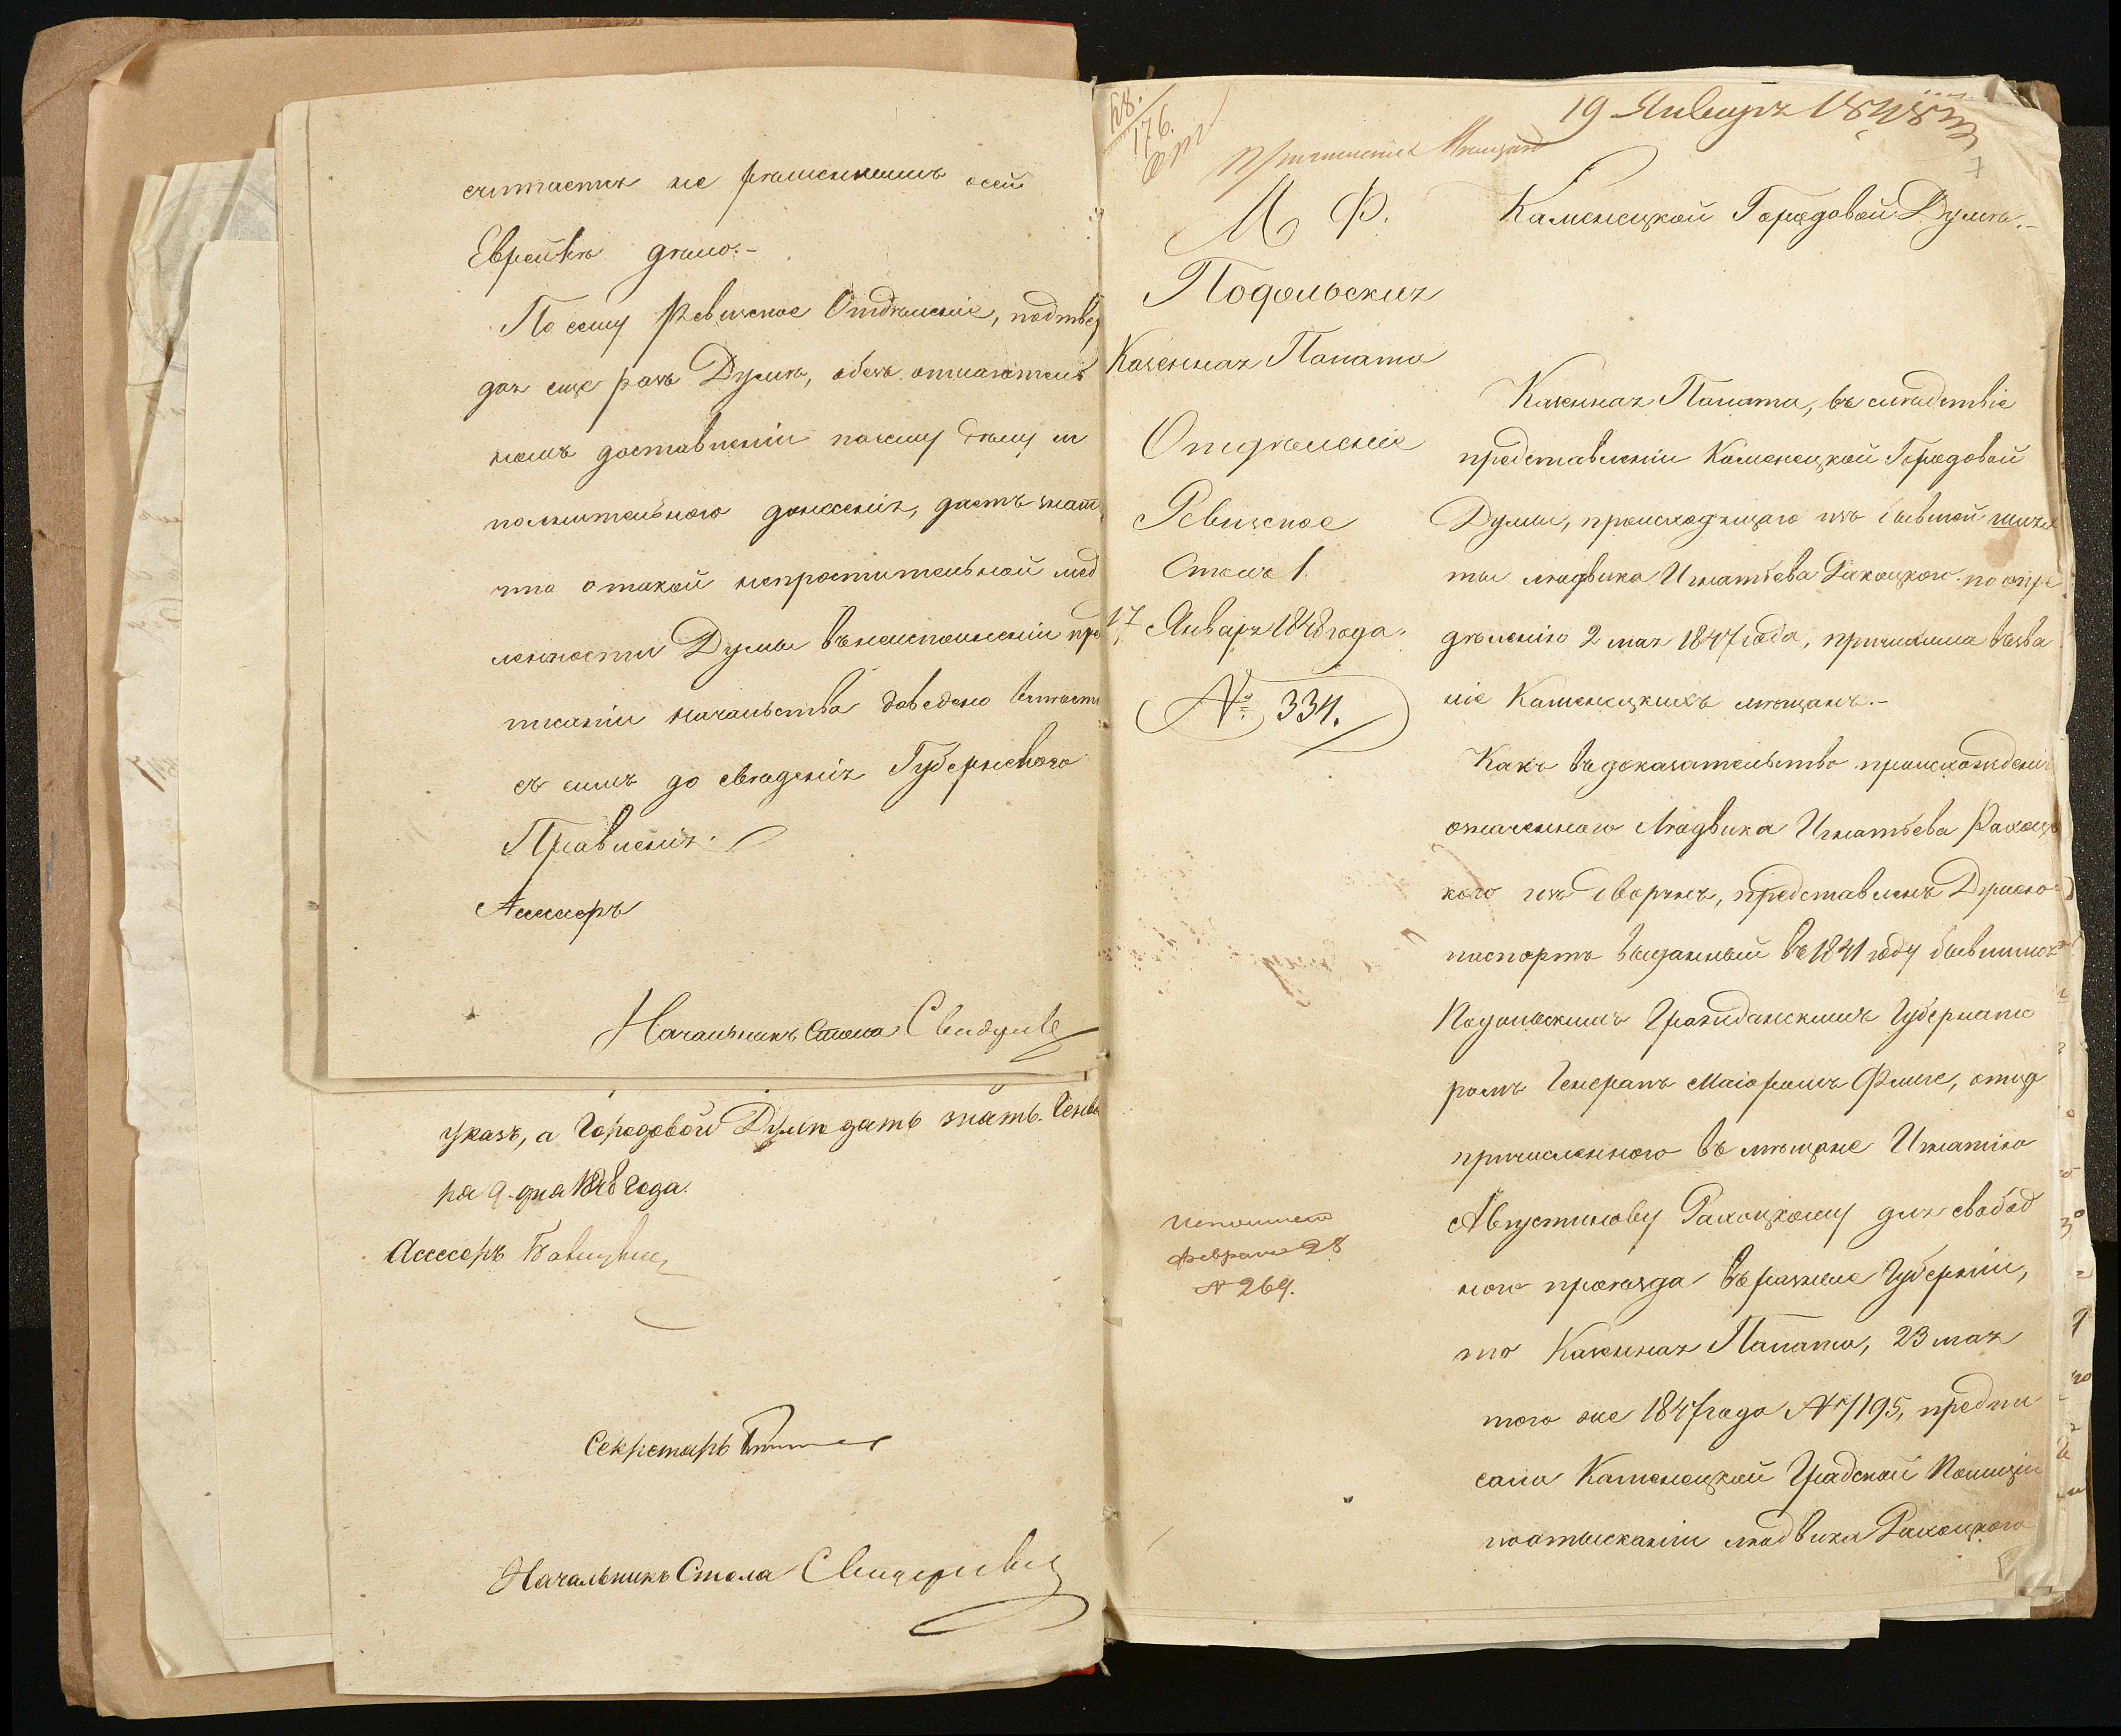 считаетъ не рѣшеннымъ всей
Еврейкѣ дѣло.-
По сему Ревизское Отдѣленіе, подтвер
дая еще разъ Думѣ, объ
номъ доставленіи по сему дѣлу и
полнительного донесенія, даетъ знать
что о такой непростительной мед
ленности Думы въ неисполненіи пред
писаніи начальства доведено вмѣстѣ
съ симъ до свѣденія Губернскаго
Правленія.
Ассесоръ
Начальникъ Стола
указъ, а Городовой Думѣ дать знать. Генва
ря 9 дня 1848 года.
Ассесоръ
Секретарь
Начальникъ Стола
19 Января 1848
176.
М Ф.
Подольская
Казенная Палата
Отдѣленіе
Ревизское
Столъ 1.
17 Января 1848 года.
№ 334.
Исполнено
февраля 28
№ 269.
Каменецкой Городовой Думѣ.-
Казенная Палата, въ слѣдствіе
представленіи Каменецкой Городовой
Думы, происходящаго изъ бывшой шлях
ты Людвика Игнатьева Ракоцкого по опре
дѣленію 2 мая 1847 года, причислила въ зва
ніе Каменецкихъ мѣщанъ.-
Какъ въ доказательство происхожденія
означенного Людвика Игнатьева Ракоц
кого изъ дворянъ, представленъ Думою
паспортъ выданный въ 1841 году бывшимъ
Подольскимъ Гражданскимъ Губернато
ромъ Генералъ Маіоромъ Флиге, отцу
причисленного въ мѣщане Игнатію
Августинову Ракоцкому для свобод
ного проѣзда въ разные Губерніи,
то Казенная Палата, 23 мая
того же 1847 года № 7195, предпи
сала Каменецкой Градской Полиціи
по отысканіи Людвика Ракоцкого